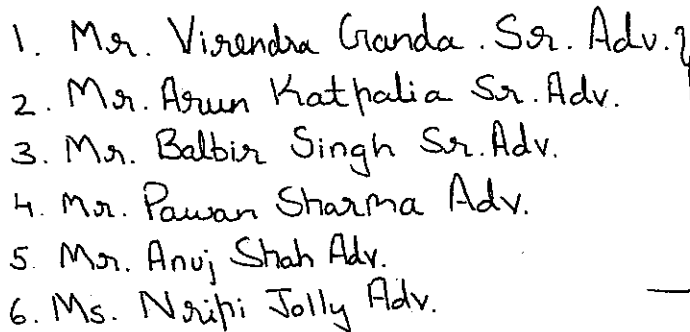 1. Mr. Virendra Ganda. Sr. Adv.}
2. Mr. Arun Kathpalia Sr. Adv.
3. Mr. Balbir Singh Sr. Adv.
4. Mr. Pawan Sharma Adv.
5. Mr. Anuj Shah Adv.
6. Ms. Nripi Jolly Adv.